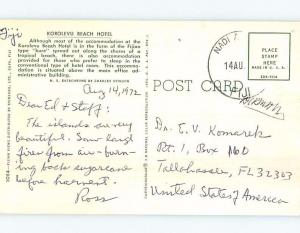 Fiji
KOROLEVU BEACH HOTEL
Although most of the accommodation at the
Korolevu Beach Hotel is in the form of the Fijian
type "bure" spread out along the shores of a
tropical beach, there is also accommodation
provided for those who prefer to sleep in
the conventional type of hotel room. This accommodation
is situated above the main office administrative
building.
Aug 14, 1972
Dear Ed & Staff:
The islands are very
beautiful. Saw large
fires from air - burning
back sugarcane
before harvest.
Ross
POST CARD
NADI
14 AU
PLACE
STAMP
HERE
Dr. E. V. Komarek
Rt. 1, Box 160
Tallahassee, FL 32303
United States of America